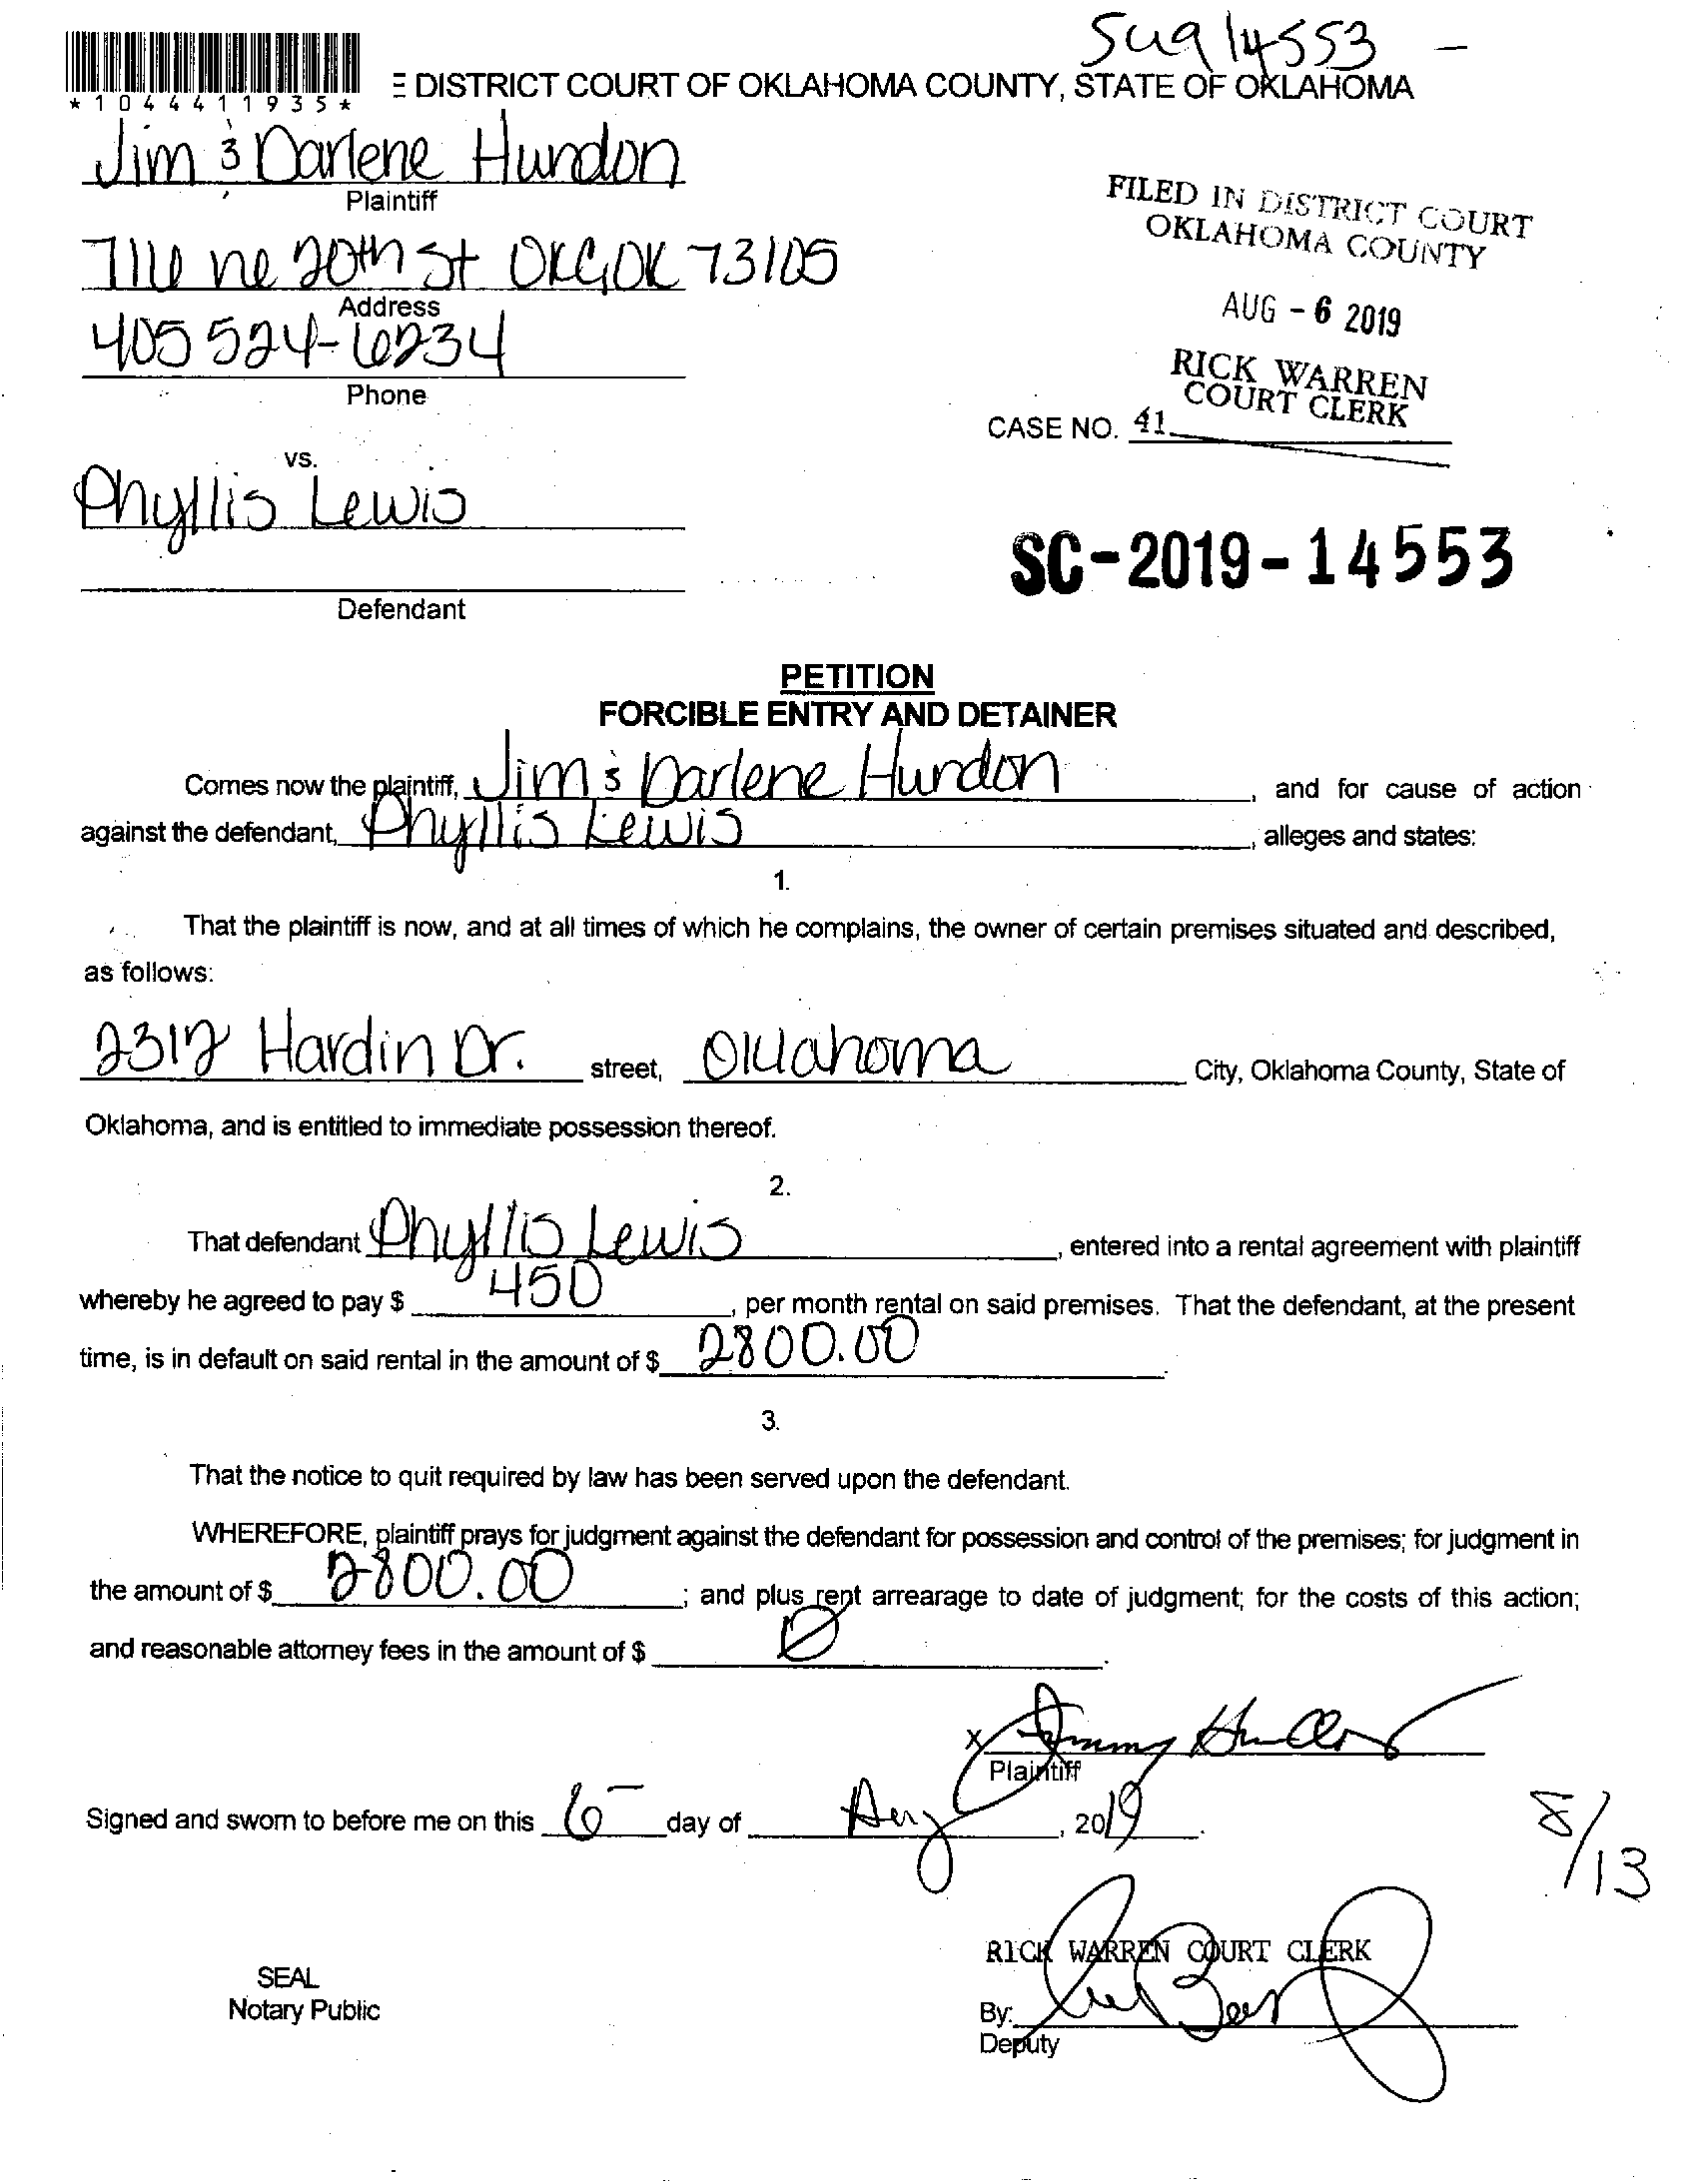 Su9 14553 -
*1044411935*
E DISTRICT COURT OF OKLAHOMA COUNTY, STATE OF OKLAHOMA
Jim & Darlene Hundon
Plaintiff
FILED IN DISTRICT COURT
OKLAHOMA COUNTY
716 ne 20th St OKC, OK 73105
Address
AUG - 6 2019
405 524-6234
Phone
RICK WARREN
COURT CLERK
CASE NO. 41
vs.
Phyllis Lewis
SC-2019-14553
Defendant
PETITION
FORCIBLE ENTRY AND DETAINER
Comes now the plaintiff, Jim & Darlene Hundon, and for cause of action
against the defendant, Phyllis Lewis, alleges and states:
1.
That the plaintiff is now, and at all times of which he complains, the owner of certain premises situated and described,
as follows:
2312 Hardin Dr. street, Oklahoma City, Oklahoma County, State of
Oklahoma, and is entitled to immediate possession thereof.
2.
That defendant Phyllis Lewis, entered into a rental agreement with plaintiff
whereby he agreed to pay $ 450, per month rental on said premises. That the defendant, at the present
time, is in default on said rental in the amount of $ 2800.00.
3.
That the notice to quit required by law has been served upon the defendant.
WHEREFORE, plaintiff prays for judgment against the defendant for possession and control of the premises; for judgment in
the amount of $ 2800.00; and plus rent arrearage to date of judgment; for the costs of this action;
and reasonable attorney fees in the amount of $ Ø.
x Jimmy Hundon
Plaintiff
Signed and sworn to before me on this 6 day of Aug, 2019.
8/13
RICK WARREN COURT CLERK
SEAL
Notary Public
By:
Deputy